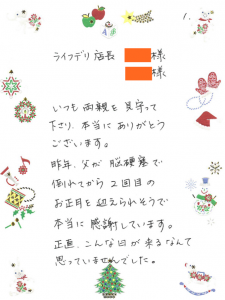 ライフデリ 店長 様
様
いつも両親を見守って
下さり、本当にありがとう
ございます。
昨年、父が脳梗塞で
倒れてから2回目の
お正月を迎えられそうで
本当に感謝しています。
正直、こんな日が来るなんて
思っていませんでした。